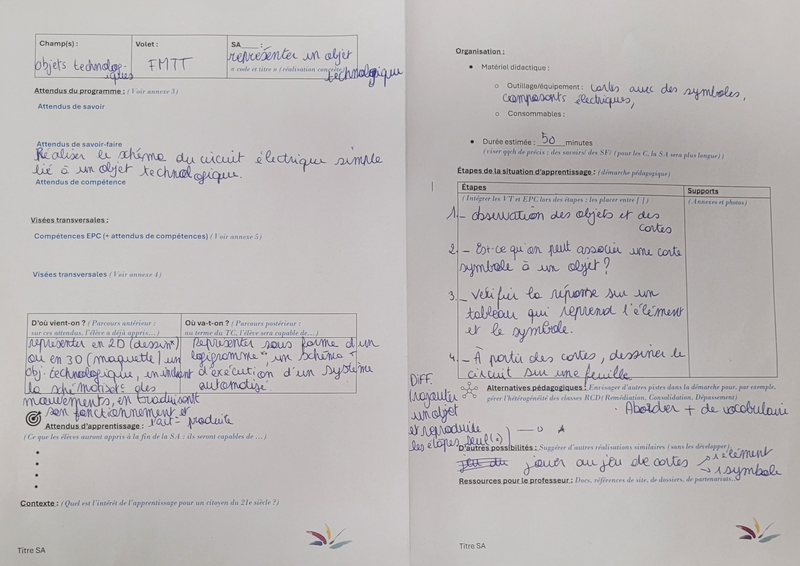 Champ(s) :
objets technolog-
iques
Volet :
FMTT
SA____ :
représenter un objet
« code et titre » (réalisation concrète)
technologique
Attendus du programme : (Voir annexe 3)
Attendus de savoir
Attendus de savoir-faire
Réaliser le schéma du circuit électrique simple
lié à un objet technologique.
Attendus de compétence
Visées transversales :
Compétences EPC (+ attendus de compétences) (Voir annexe 5)
Visées transversales (Voir annexe 4)
D'où vient-on ? (Parcours antérieur :
sur ces attendus, l'élève a déjà appris…)
représenter en 2D (dessin)
ou en 3D (maquette) un
obj. technologique, en incluant
la schématisat° des
mouvements, en traduisant
son fonctionnement
Où va-t-on ? (Parcours postérieur :
au terme du TC, l'élève sera capable de…)
Représenter sous forme d'un
logigramme, un schéma
d'exécution d'un système
automatisé
Attendus d'apprentissage :
(Ce que les élèves auront appris à la fin de la SA : ils seront capables de …)
Contexte : (Quel est l'intérêt de l'apprentissage pour un citoyen du 21e siècle ?)
Titre SA
Organisation :
Matériel didactique :
Outillage/équipement : cartes avec des symboles,
composants électriques,
Consommables :
Durée estimée : 50 minutes
(viser qqch de précis : des savoirs/ des SF/ (pour les C, la SA sera plus longue) )
Étapes de la situation d'apprentissage : (démarche pédagogique)
Étapes
(Intégrer les VT et EPC lors des étapes : les placer entre [ ] )
Supports
(Annexes et photos)
1. - observation des objets et des
cartes
2. - Est-ce qu'on peut associer une carte
symbole à un objet ?
3. - Vérifier la réponse sur un
tableau qui reprend l'élément
et le symbole.
4. - À partir des cartes, dessiner le
circuit sur une feuille
DIFF.
un objet
et reproduire
les étapes seul(e)
Alternatives pédagogiques : Envisager d'autres pistes dans la démarche pour, par exemple,
gérer l'hétérogénéité des classes RCD (Remédiation, Consolidation, Dépassement)
. Aborder + de vocabulaire
D'autres possibilités : Suggérer d'autres réalisations similaires (sans les développer)
jouer au jeu de cartes → 1 élément
→ 1 symbole
Ressources pour le professeur : Docs, références de site, de dossiers, de partenariats..
Titre SA